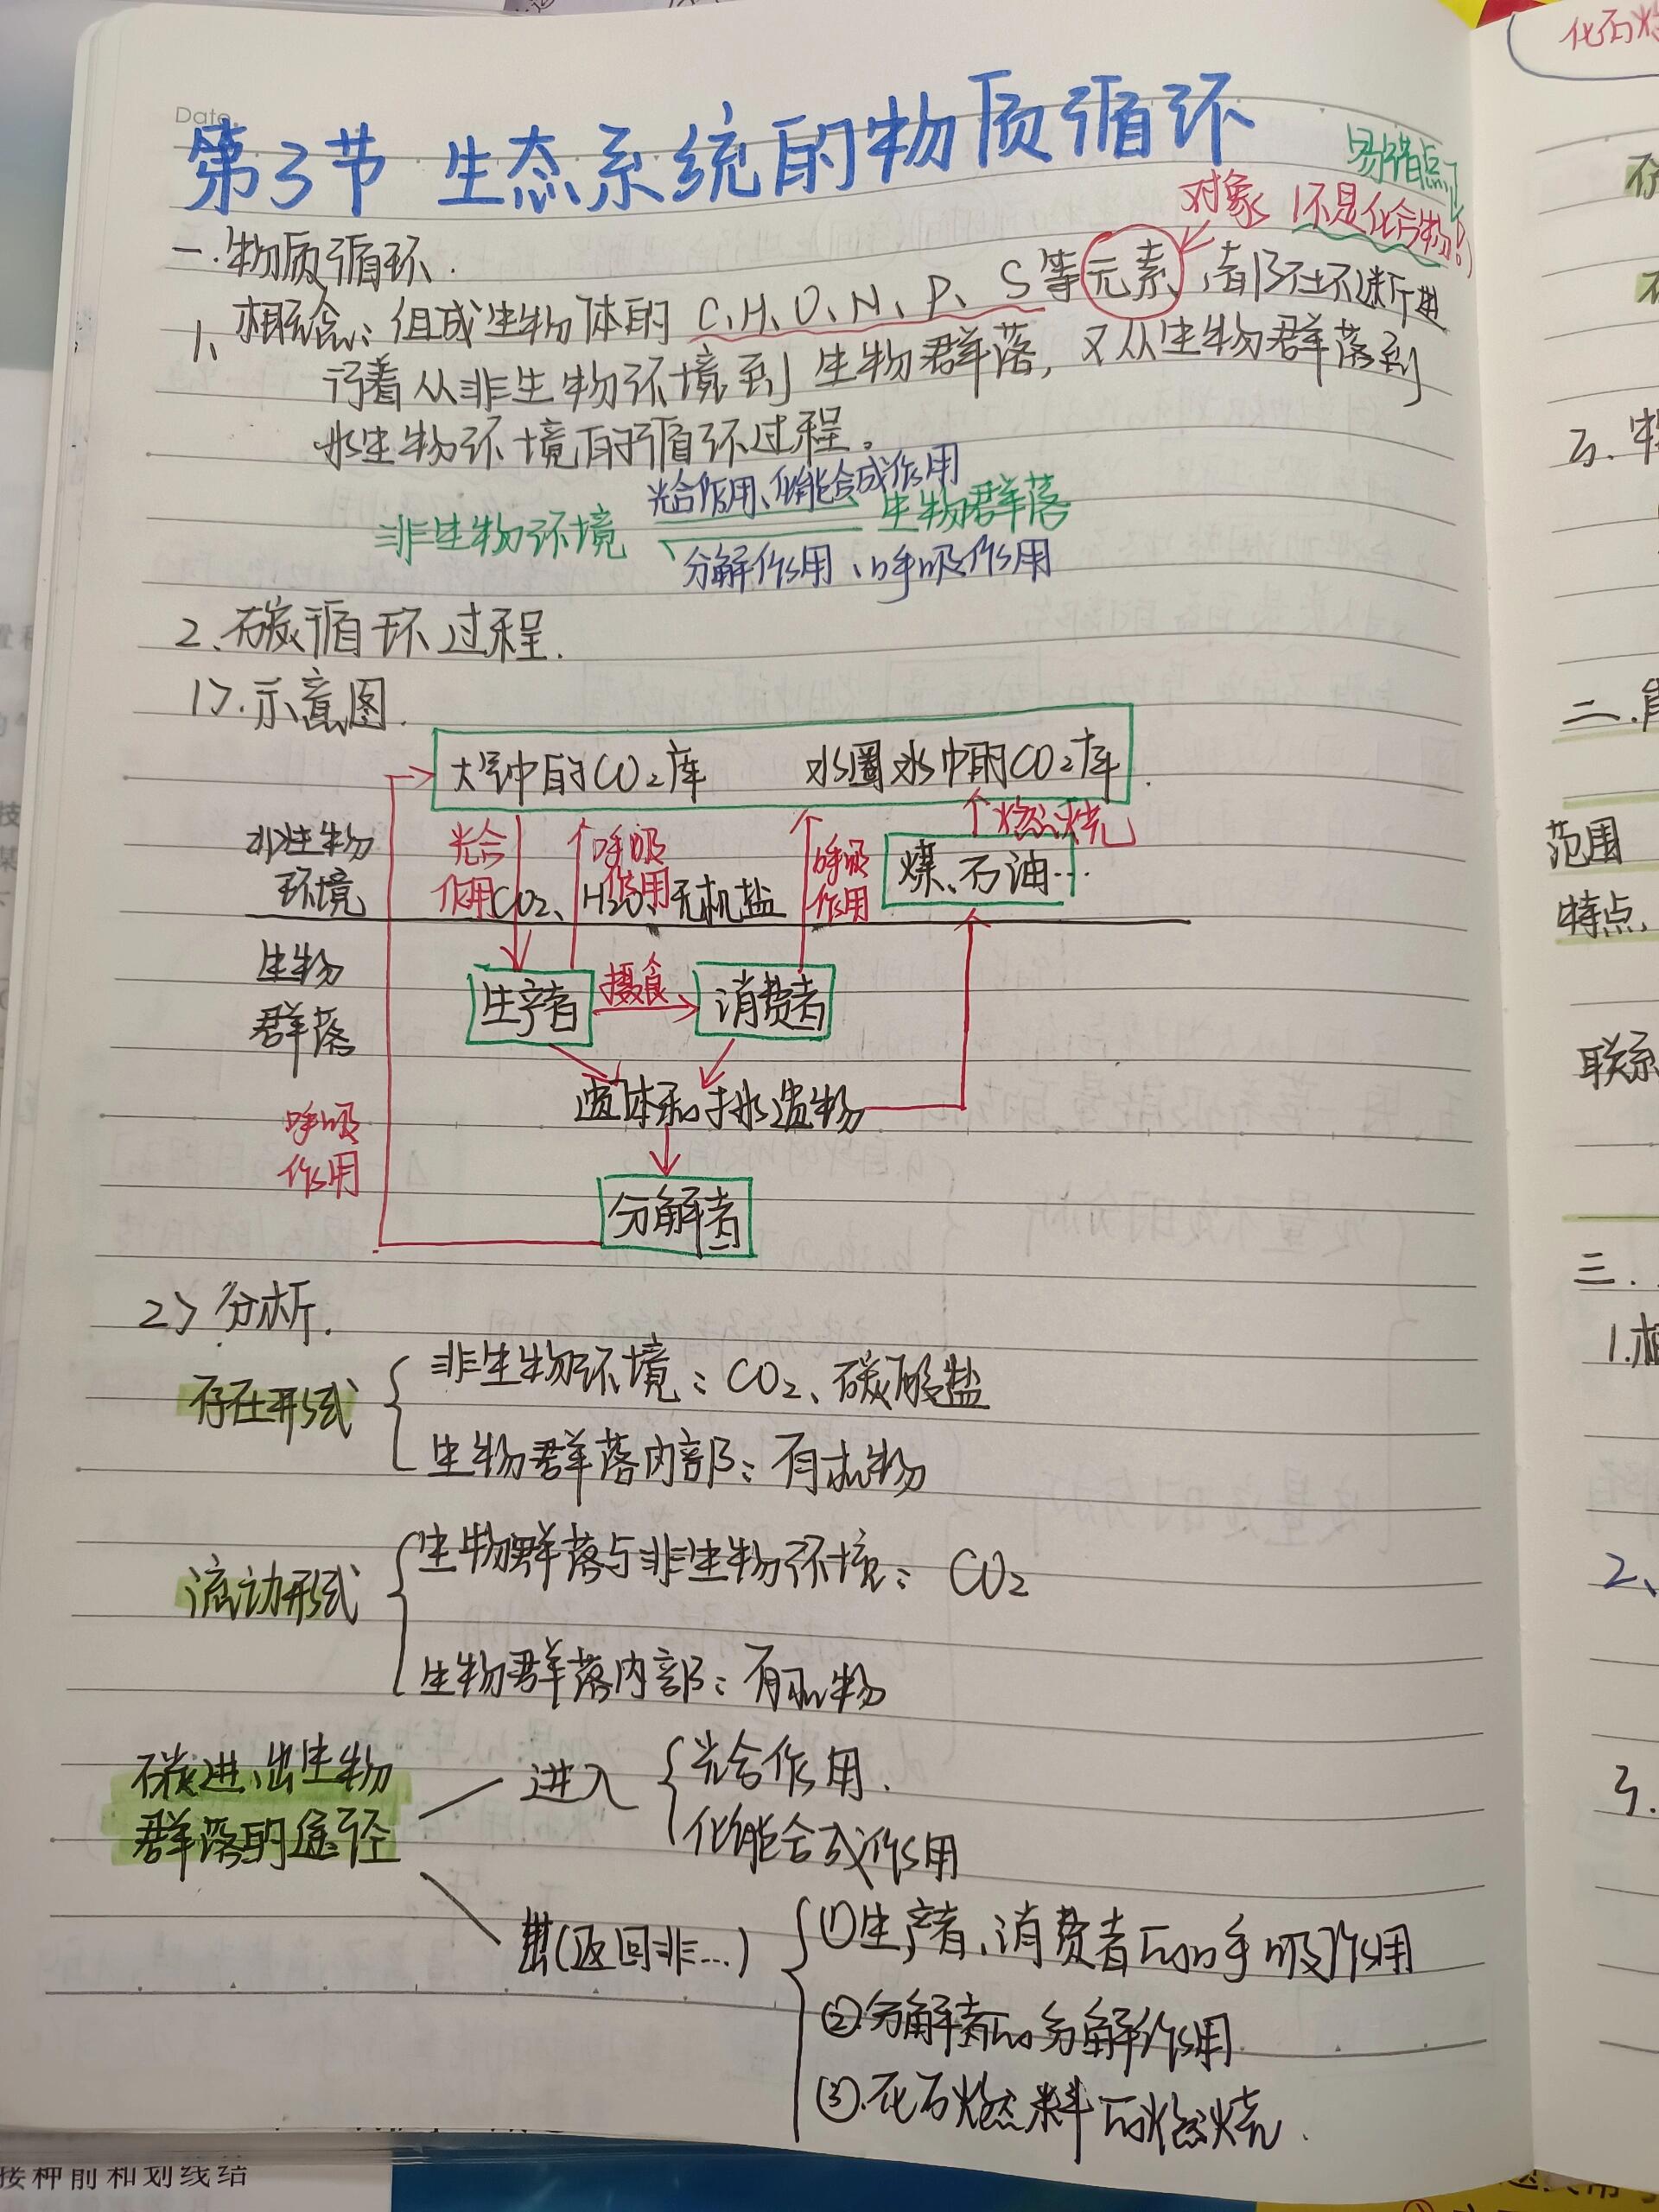 Date.
第3节 生态系统的物质循环
易错点
对象 (不是化合物!)
一.物质循环.
1、概念:组成生物体的C、H、O、N、P、S等元素,都在不断进
行着从非生物环境到生物群落,又从生物群落到
非生物环境的循环过程。
光合作用、化能合成作用
非生物环境 生物群落
分解作用、呼吸作用
2、碳循环过程.
1>.示意图.
大气中的CO₂库 水圈水中的CO₂库
燃烧
非生物
环境
光合
作用
呼吸
作用
呼吸
作用
煤、石油…
CO₂、H₂O、无机盐
生物
群落
生产者 摄食 消费者
遗体和排遗物
呼吸
作用
分解者
2>分析.
存在形式
非生物环境:CO₂、碳酸盐
生物群落内部:有机物
流动形式
生物群落与非生物环境:CO₂
生物群落内部:有机物
碳进、出生物
群落的途径
进入
光合作用.
化能合成作用
出(返回非…)
①生产者、消费者的呼吸作用
②分解者的分解作用
③.化石燃料的燃烧.
化石燃
二.
范围
特点,
联系
三.
2、
3.
接种前和划线结